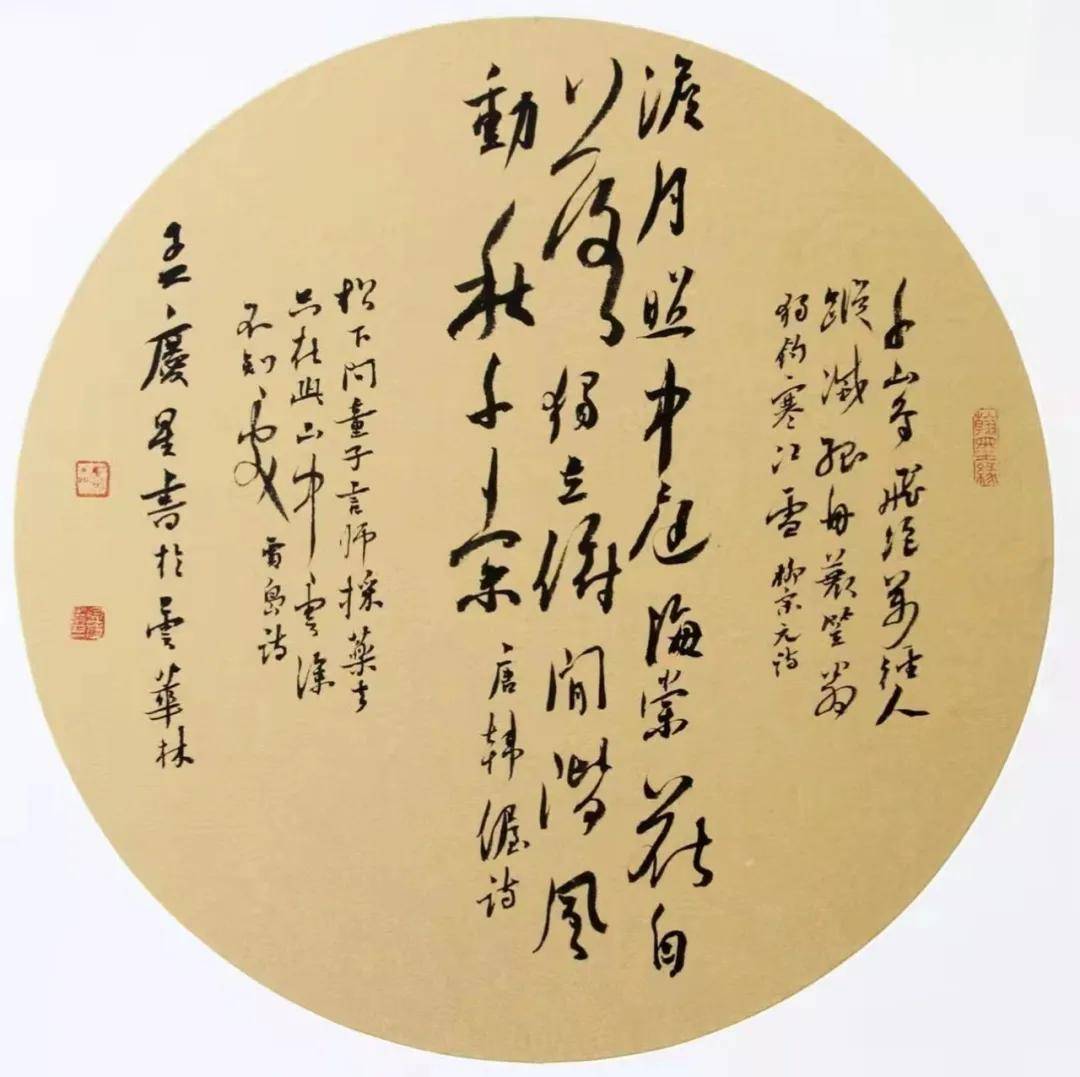 翰墨缘
千山鳥飛絕萬徑人
蹤滅孤舟蓑笠翁
獨釣寒江雪 柳宗元诗
澹月照中庭海棠花自
落獨立俯閒階風
動秋千索 唐韓偓诗
松下问童子言师採藥去
只在此山中雲深
不知處 賈島诗
孟慶星書於雲華林